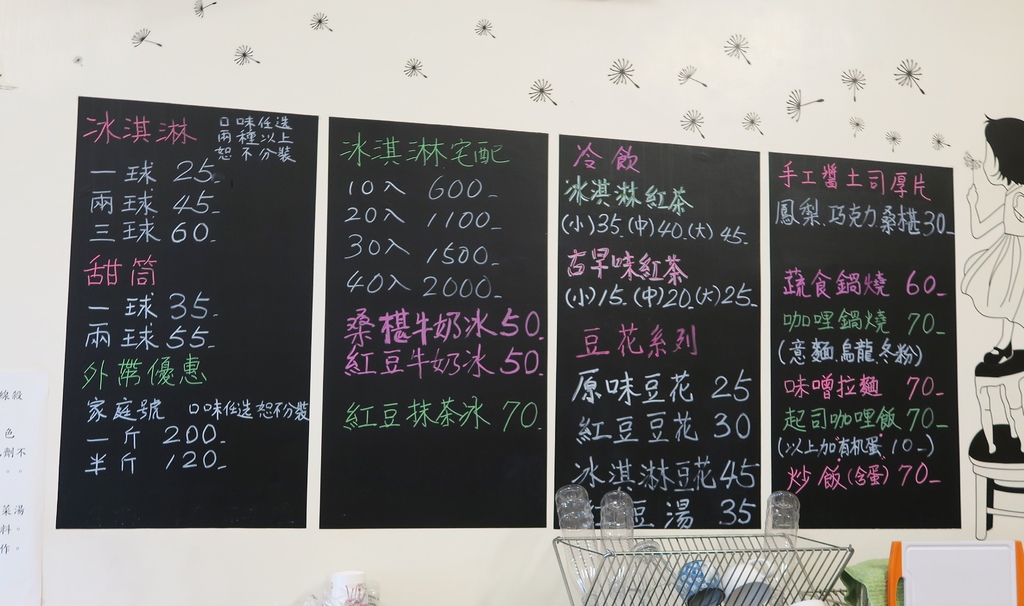 冰淇淋
口味任选
兩種以上
恕不分裝
一球 25
兩球 45
三球 60
甜筒
一球 35
兩球 55
外帶優惠
家庭號 口味任选恕不分裝
一斤 200
半斤 120
冰淇淋宅配
10入 600
20入 1100
30入 1500
40入 2000
桑椹牛奶冰 50
紅豆牛奶冰 50
紅豆抹茶冰 70
冷飲
冰淇淋紅茶
(小)35.(中)40.(大)45
古早味紅茶
(小)15.(中)20.(大)25
豆花系列
原味豆花 25
紅豆豆花 30
冰淇淋豆花45
豆湯 35
手工醬土司厚片
鳳梨.巧克力.桑椹30
蔬食鍋燒 60
咖哩鍋燒 70
(意麵.烏龍.冬粉)
味噌拉麵 70
起司咖哩飯 70
(以上加有机蛋10)
炒飯(含蛋)70
線殺
色
劑不
菜湯
料。
作。